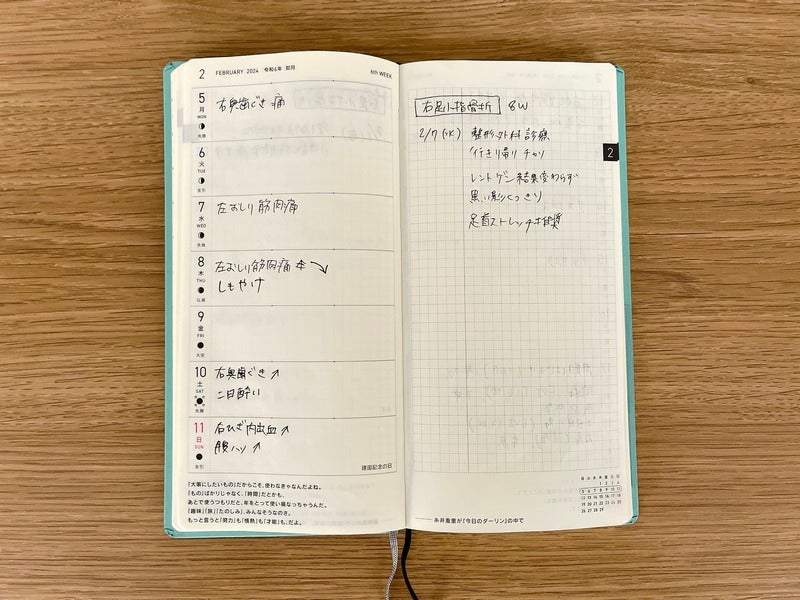 2 FEBRUARY 2024 令和6年 如月
6th WEEK
5
月
MON
先勝
右奥歯ぐき 痛
6
火
TUE
友引
7
水
WED
先負
左おしり筋肉痛
8
木
THU
仏滅
左おしり筋肉痛
しもやけ
9
金
FRI
大安
10
土
SAT
先勝
右奥歯ぐき↗
二日酔い
11
日
SUN
友引
右ひざ内出血↗
腹ハリ↗
建国記念の日
「大事にしたいもの」だからこそ、使わなきゃなんだよね。
「もの」ばかりじゃなく、「時間」だとかも。
あとで使うつもりだと、年をとって使い痛なっちゃうんだ。
「趣味」「旅」「たのしみ」、みんなそうなのさ。
もっと言うと「努力」も「情熱」も「才能」も、だよ。
右足小指骨折 8W
2/7(水) 整形外科診療
行き帰りチャリ
レントゲン結果変わらず
黒い影くっきり
足首ストレッチ推奨
2
月 火 水 木 金 土 日
1 2 3 4
5 6 7 8 9 10 11
12 13 14 15 16 17 18
19 20 21 22 23 24 25
26 27 28 29
——糸井重里が「今日のダーリン」の中で